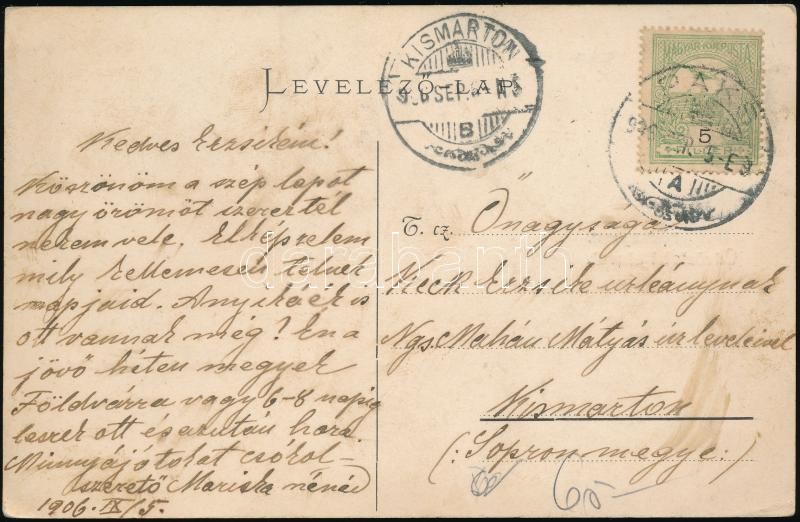 LEVELEZŐ-LAP
KISMARTON
B
MAGYAR KIR. POSTA
PAKS
5
A
Kedves Erzsikém!
Köszönöm a szép lapot
nagy örömöt szereztél
nekem vele. Elképzelem
mily kellemesen telnek
napjaid. Anyikáék is
ott vannak még? Én a
jövő héten megyek
Földvárra vagy 6-8 napig
leszek ott és azután haza.
Mindnyájótokat csókol
szerető Mariska nénéd
1906. IX/5.
T. cz. Őnagysága
Keck Erzsike urleánynak
Ngs. Mátyás úr levelével
Kismarton
(: Sopron megye :)
60-
darabanth